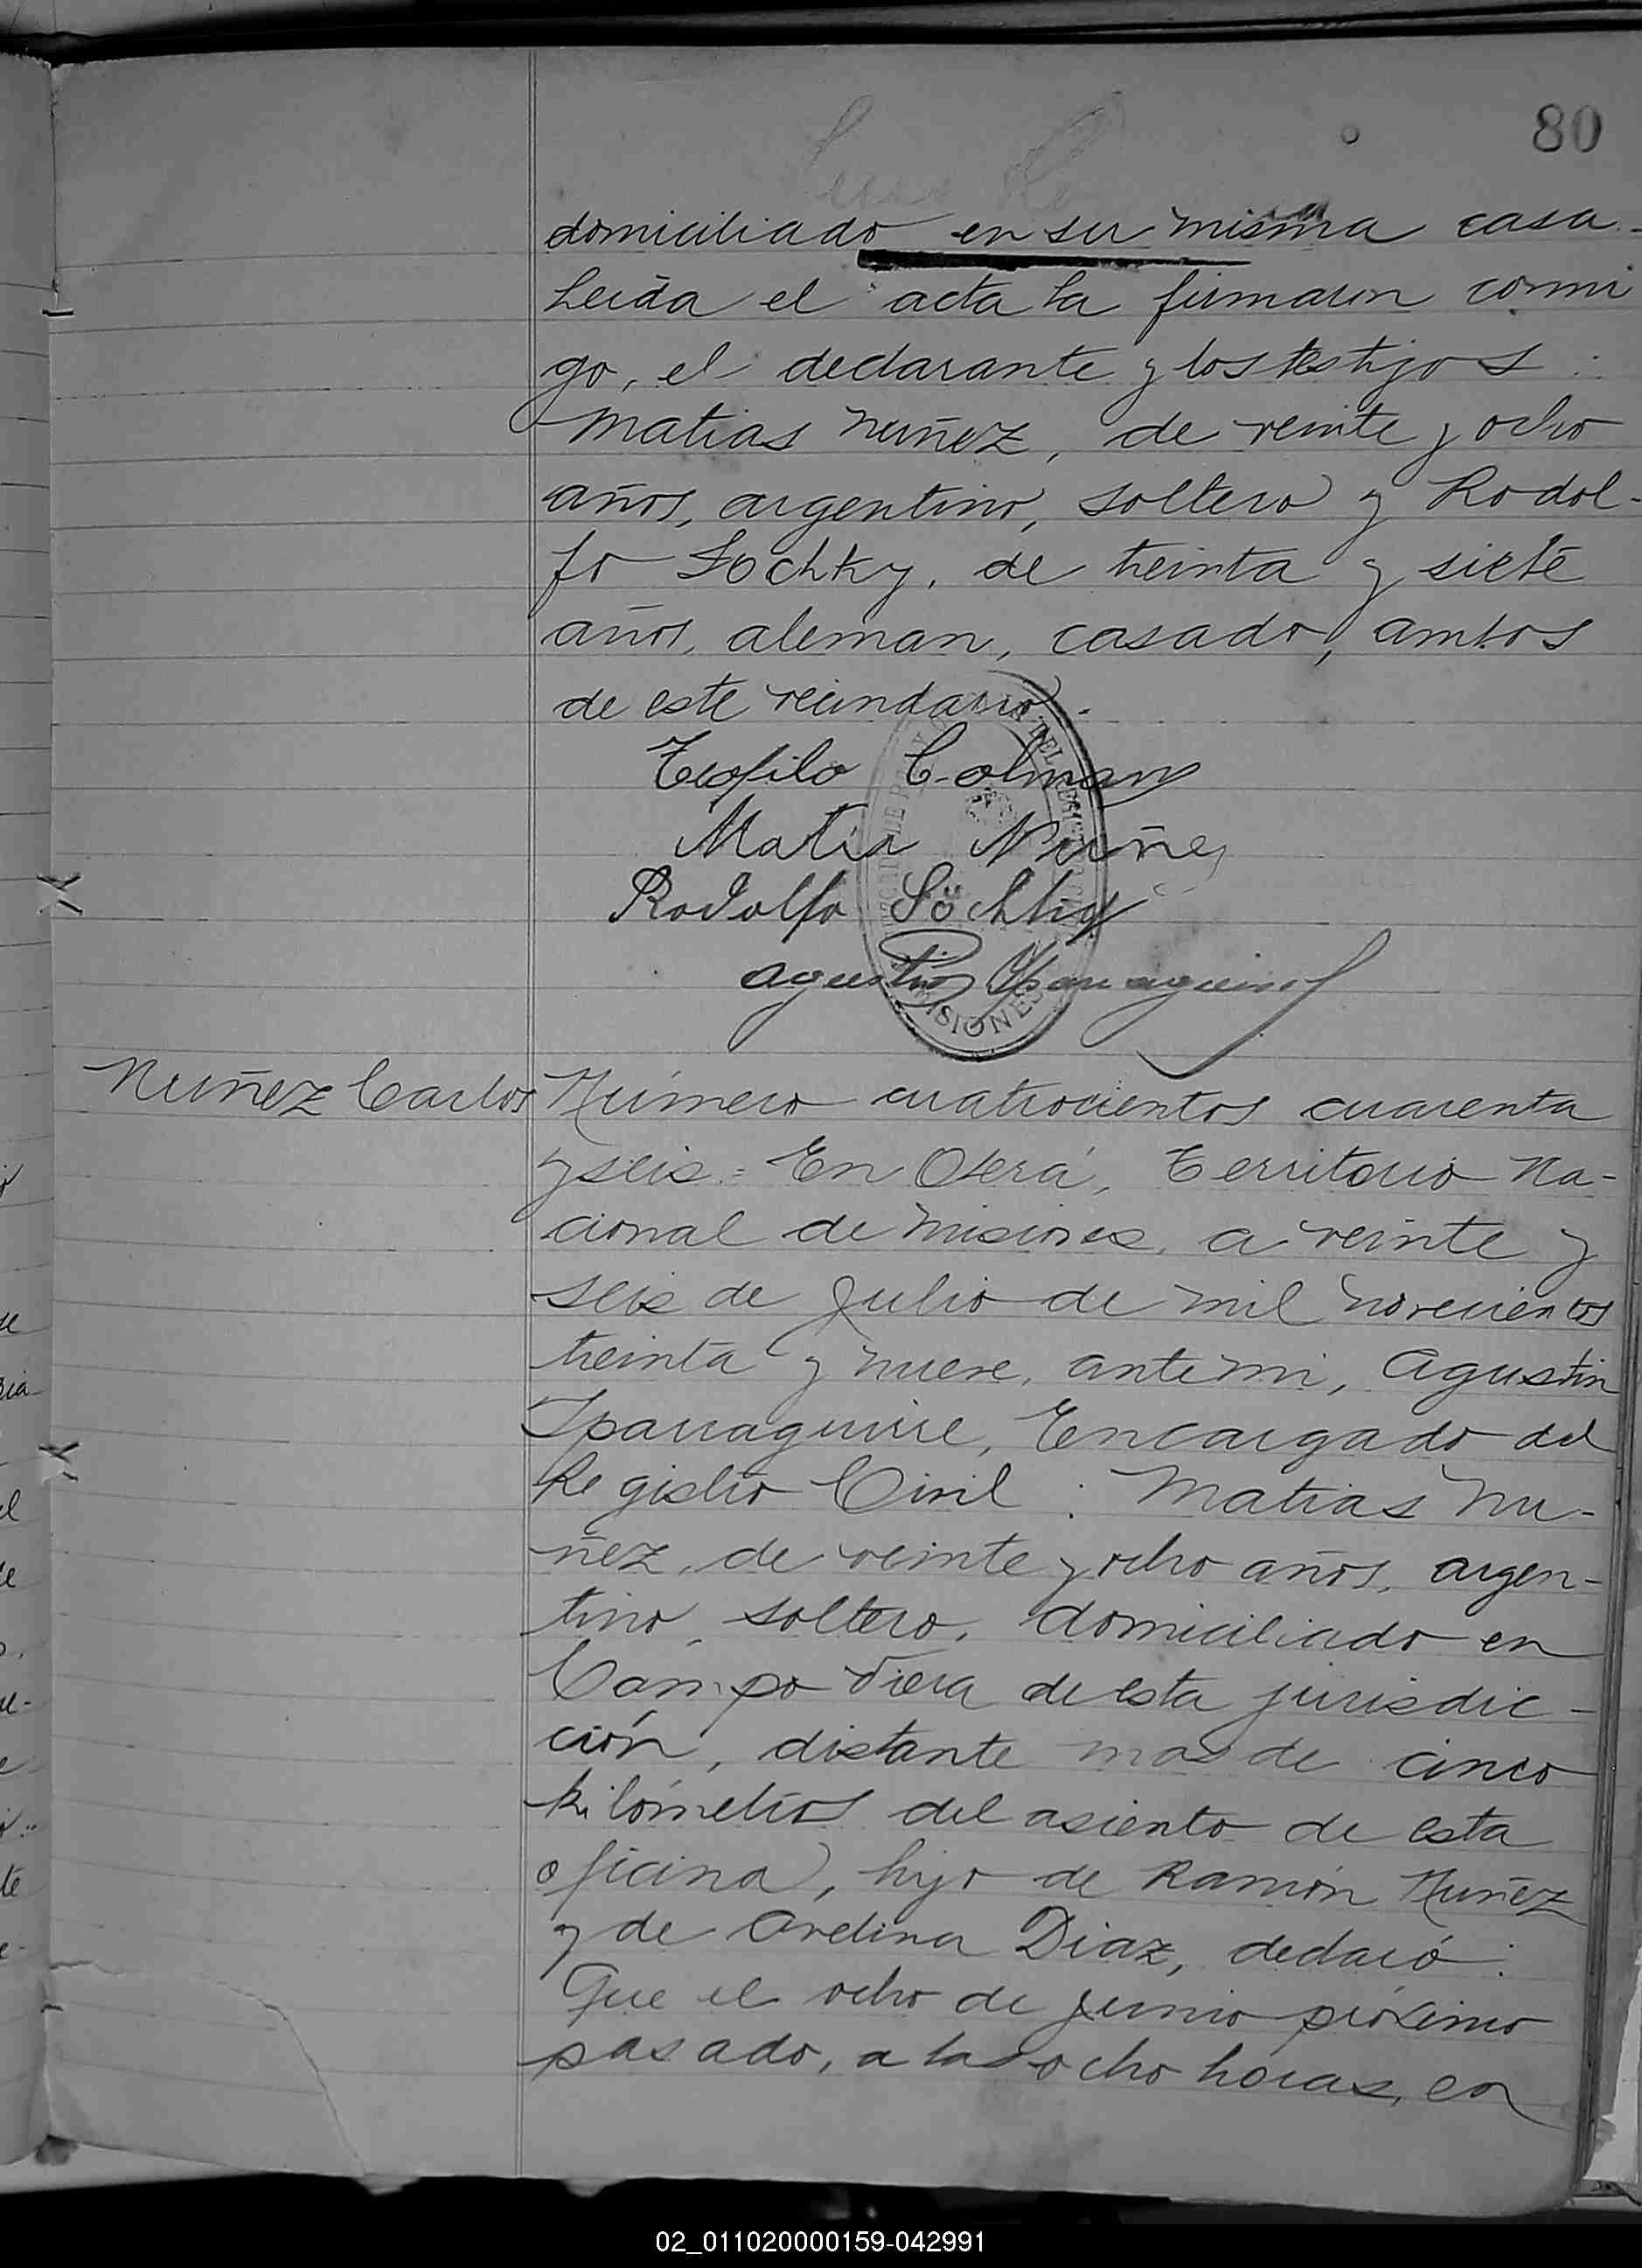 80
domiciliado en su misma casa.-
Leida el acta la firmaron conmi
go, el declarante y los testigos:
Matias Nuñez, de veinte y ocho
años, argentino, soltero y Rodol-
fo Sochky, de treinta y siete
años, aleman, casado, ambos
de este vecindario.
Teofilo Colman
Matia Nuñez
Rodolfo Söchtig
Agustin Yparraguirre
MISIONES
Nuñez Carlos
Número cuatrocientos cuarenta
y seis = En Oberá, Territorio Na-
cional de Misiones, a veinte y
seis de Julio de mil novecientos
treinta y nueve, ante mi, Agustin
Iparraguirre, Encargado del
Registro Civil: Matias Nu-
ñez, de veinte y ocho años, argen-
tino, soltero, domiciliado en
Campo Viera de esta jurisdic-
ción, distante mas de cinco
kilómetros del asiento de esta
oficina, hijo de Ramón Nuñez
y de Avelina Diaz, declaró:
Que el ocho de junio próximo
pasado, a las ocho horas, en
02_011020000159-042991